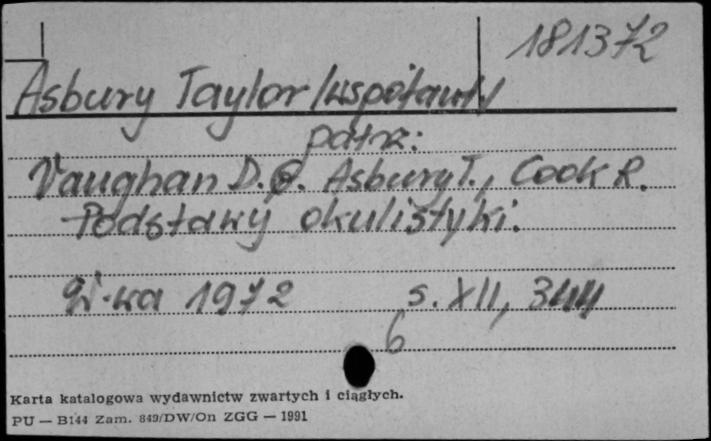 181372
Asbury Taylor /współaut/
patrz:
Vaughan D. Asbury T., Cook R.
Podstawy okulistyki.
W-wa 1972 s. XII, 344
6
Karta katalogowa wydawnictw zwartych i ciągłych.
PU — B144 Zam. 849/DW/On ZGG — 1991